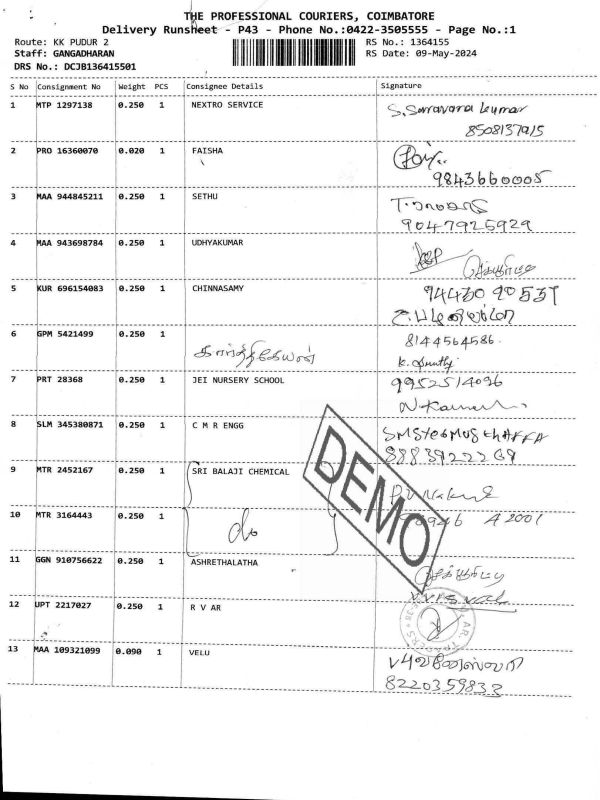 THE PROFESSIONAL COURIERS, COIMBATORE
Delivery Runsheet - P43 - Phone No.:0422-3505555 - Page No.:1
Route: KK PUDUR 2 RS No.: 1364155
Staff: GANGADHARAN RS Date: 09-May-2024
DRS No.: DCJB136415501
S No Consignment No Weight PCS Consignee Details Signature
1 MTP 1297138 0.250 1 NEXTRO SERVICE S. Saravana kumar
8508137915
2 PRO 16360070 0.020 1 FAISHA
9843660005
3 MAA 944845211 0.250 1 SETHU
9047925929
4 MAA 943698784 0.250 1 UDHYAKUMAR
5 KUR 696154083 0.250 1 CHINNASAMY 94430 90537
6 GPM 5421499 0.250 1 8144564586
கார்த்திகேயன்
7 PRT 28368 0.250 1 JEI NURSERY SCHOOL 9952514096
8 SLM 345380871 0.250 1 C M R ENGG
9 MTR 2452167 0.250 1 SRI BALAJI CHEMICAL
10 MTR 3164443 0.250 1
DEMO
11 GGN 910756622 0.250 1 ASHRETHALATHA
12 UPT 2217027 0.250 1 R V AR
13 MAA 109321099 0.090 1 VELU
8220359833